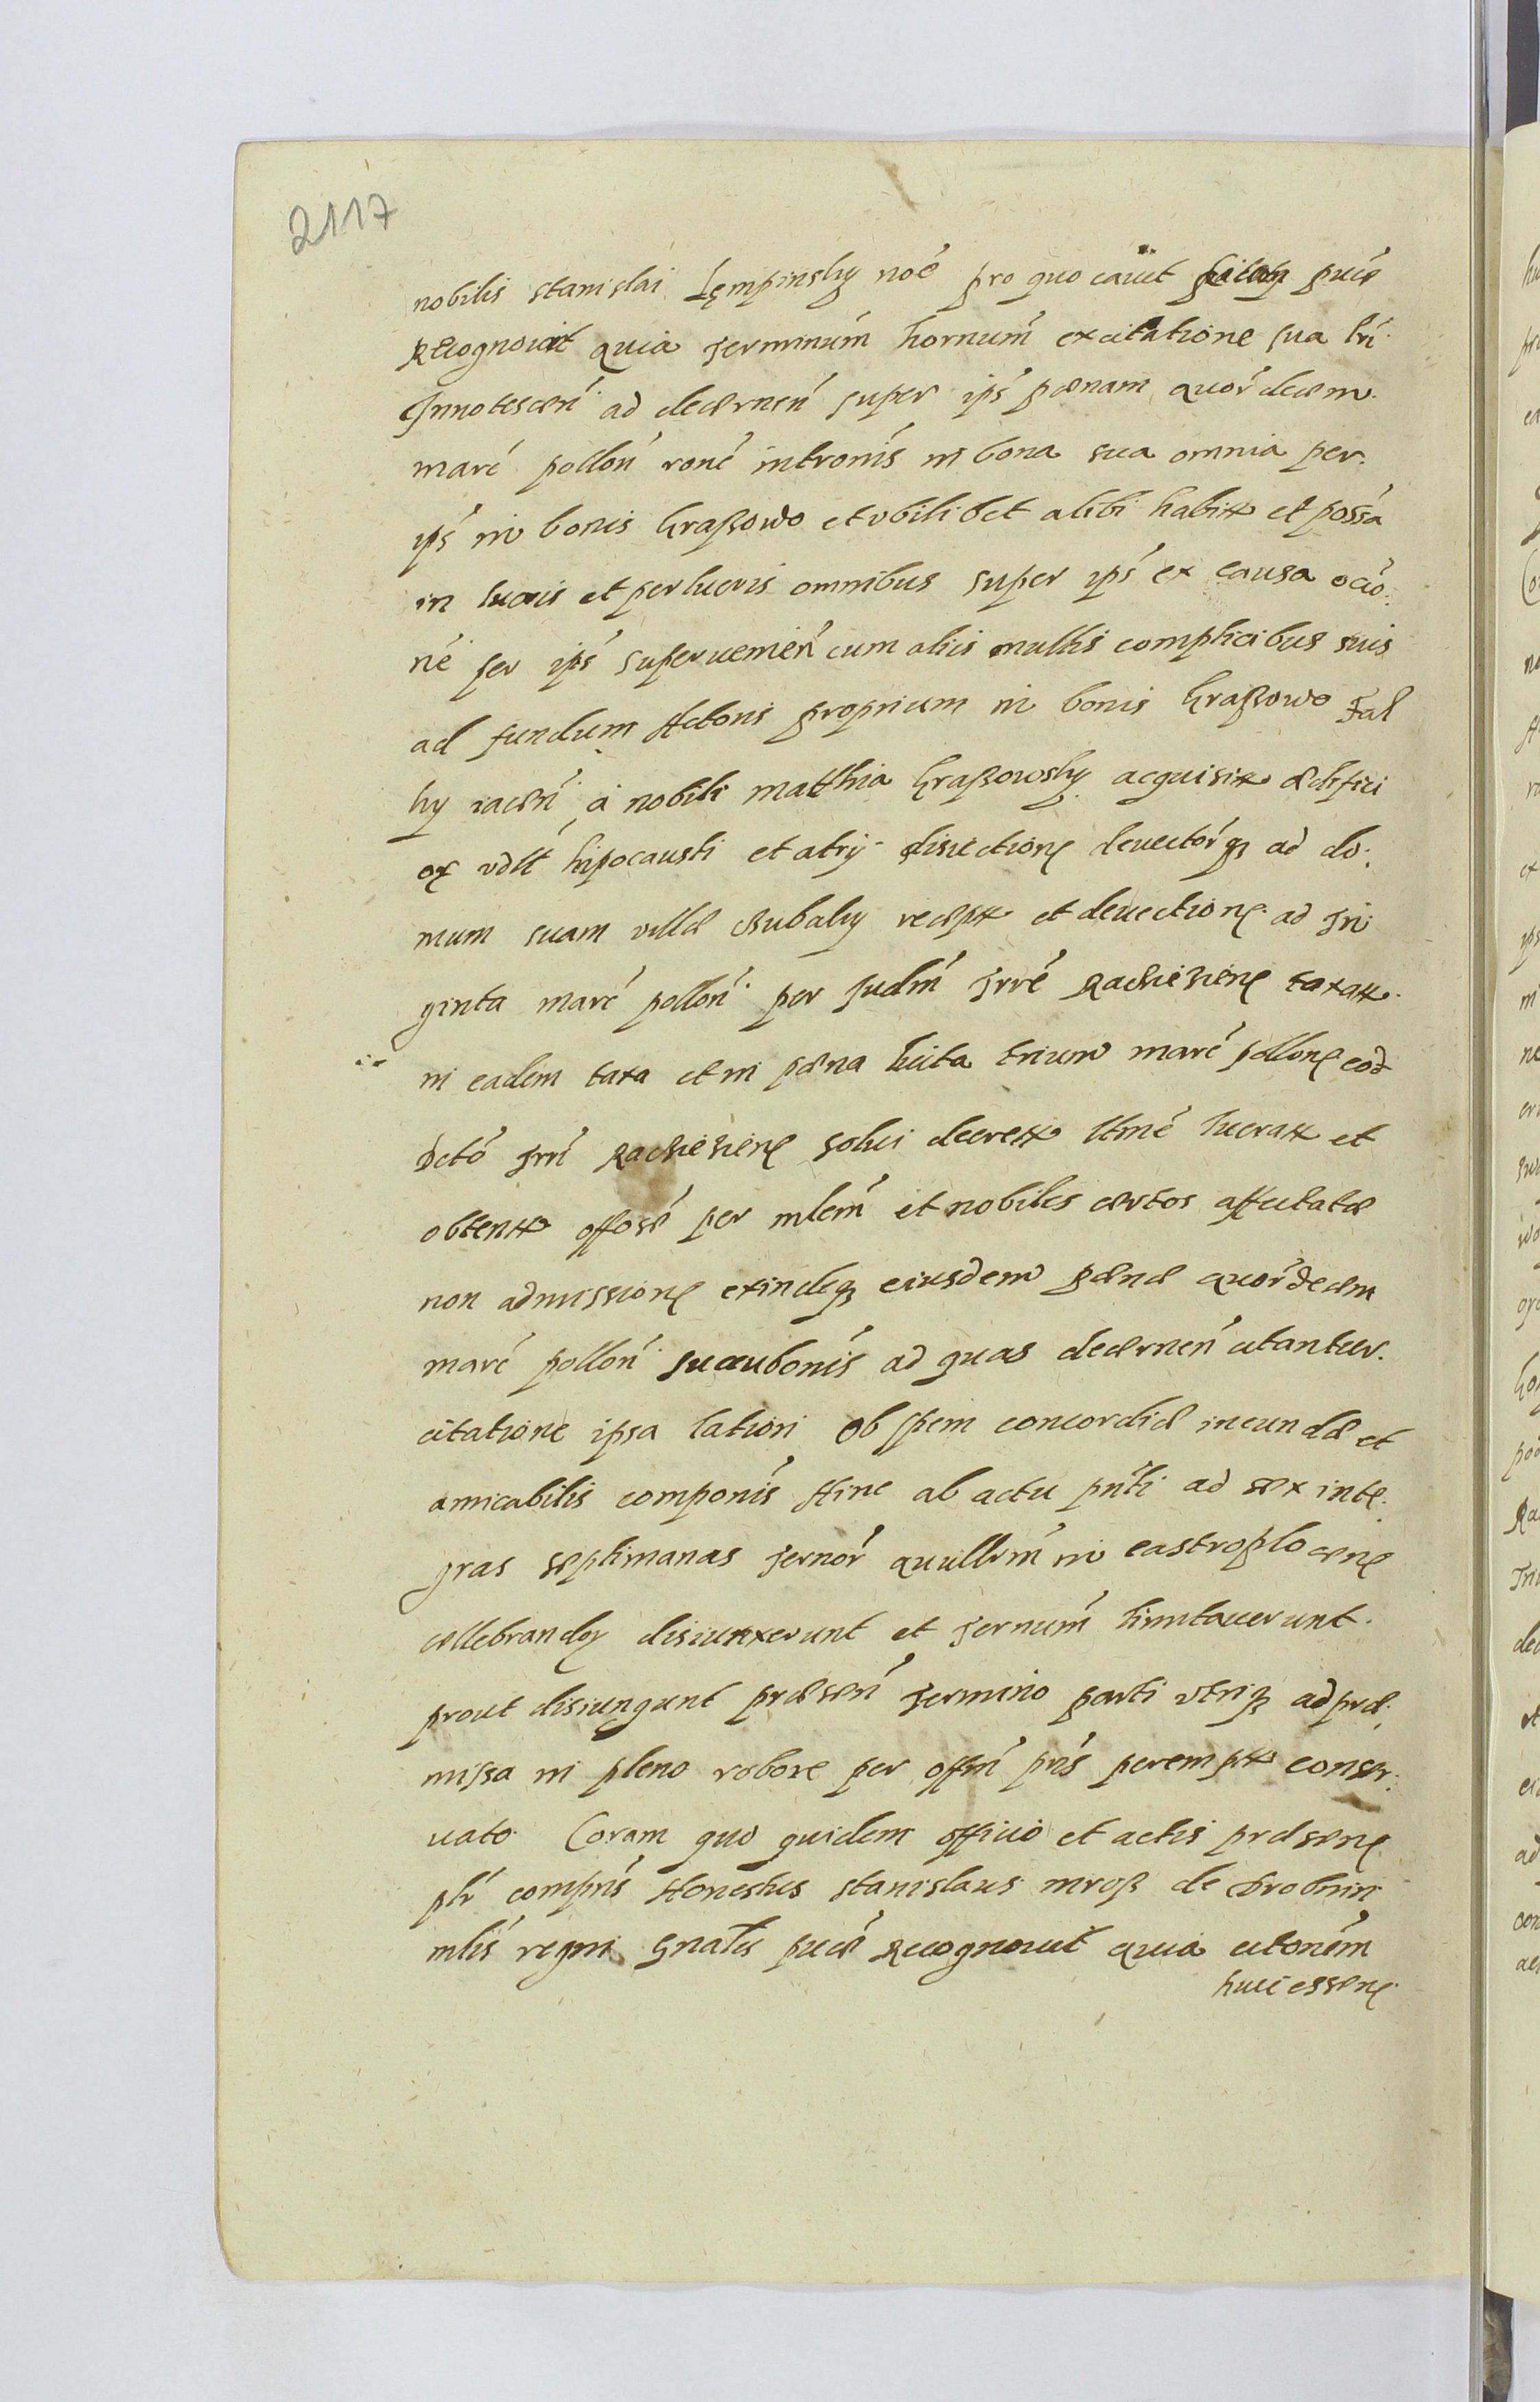 2117
nobilis stanislai Lempinsky noe pro quo cauit puce
Recognouit quia Terminum hornum ex citatione sua lri
Innotescen ad decernen super ips pænam quordecem
marc pollon rone intromis in bona sua omnia per
ips in bonis kraßowo et vbilibet alibi habitt et possa
in lucris et perlucris omnibus super ips ex causa occo
ne per ips superuenien cum aliis multis complicibus suis
ad fundum Actoris proprium in bonis kraßowo Fal
ky iacen a nobili matthia kraßowsky acquisitt ædifici
or vdlt hipocausti et atrij disiectione deuectorq ad do
mum suam villæ Rubalky receptt et deuectione ad Tri
ginta marc pollon per Judm Trre Raciesiens taxatt
in eadem taxa et in pæna luita trium marc pollone eod
dcto Trri Raciesiens solui decrett ltme lucratt et
obtentt offose per mlem et nobiles certos affectatæ
non admissione exindeq eiusdem pænæ quordecem
marc pollon succubonis ad quas decernen citantur
citatione ipsa latiori ob spem concordiæ ineundæ et
amicabilis componis Hinc ab actu pnti ad sex inte
gras septimanas Ternor quullrm in castro plocens
cellebrandor disiunxerunt et Ternum limitauerunt
prout disiungunt præsen Termino parti vtriq ad præ
missa in pleno robore per offm pns peremptt conser
uato Coram quo quidem officio et actis præsens
plr compns Honestus stanislaus mroß de Drobnin
mlis regni gnalis puce Recognouit quia citonem
huic essens